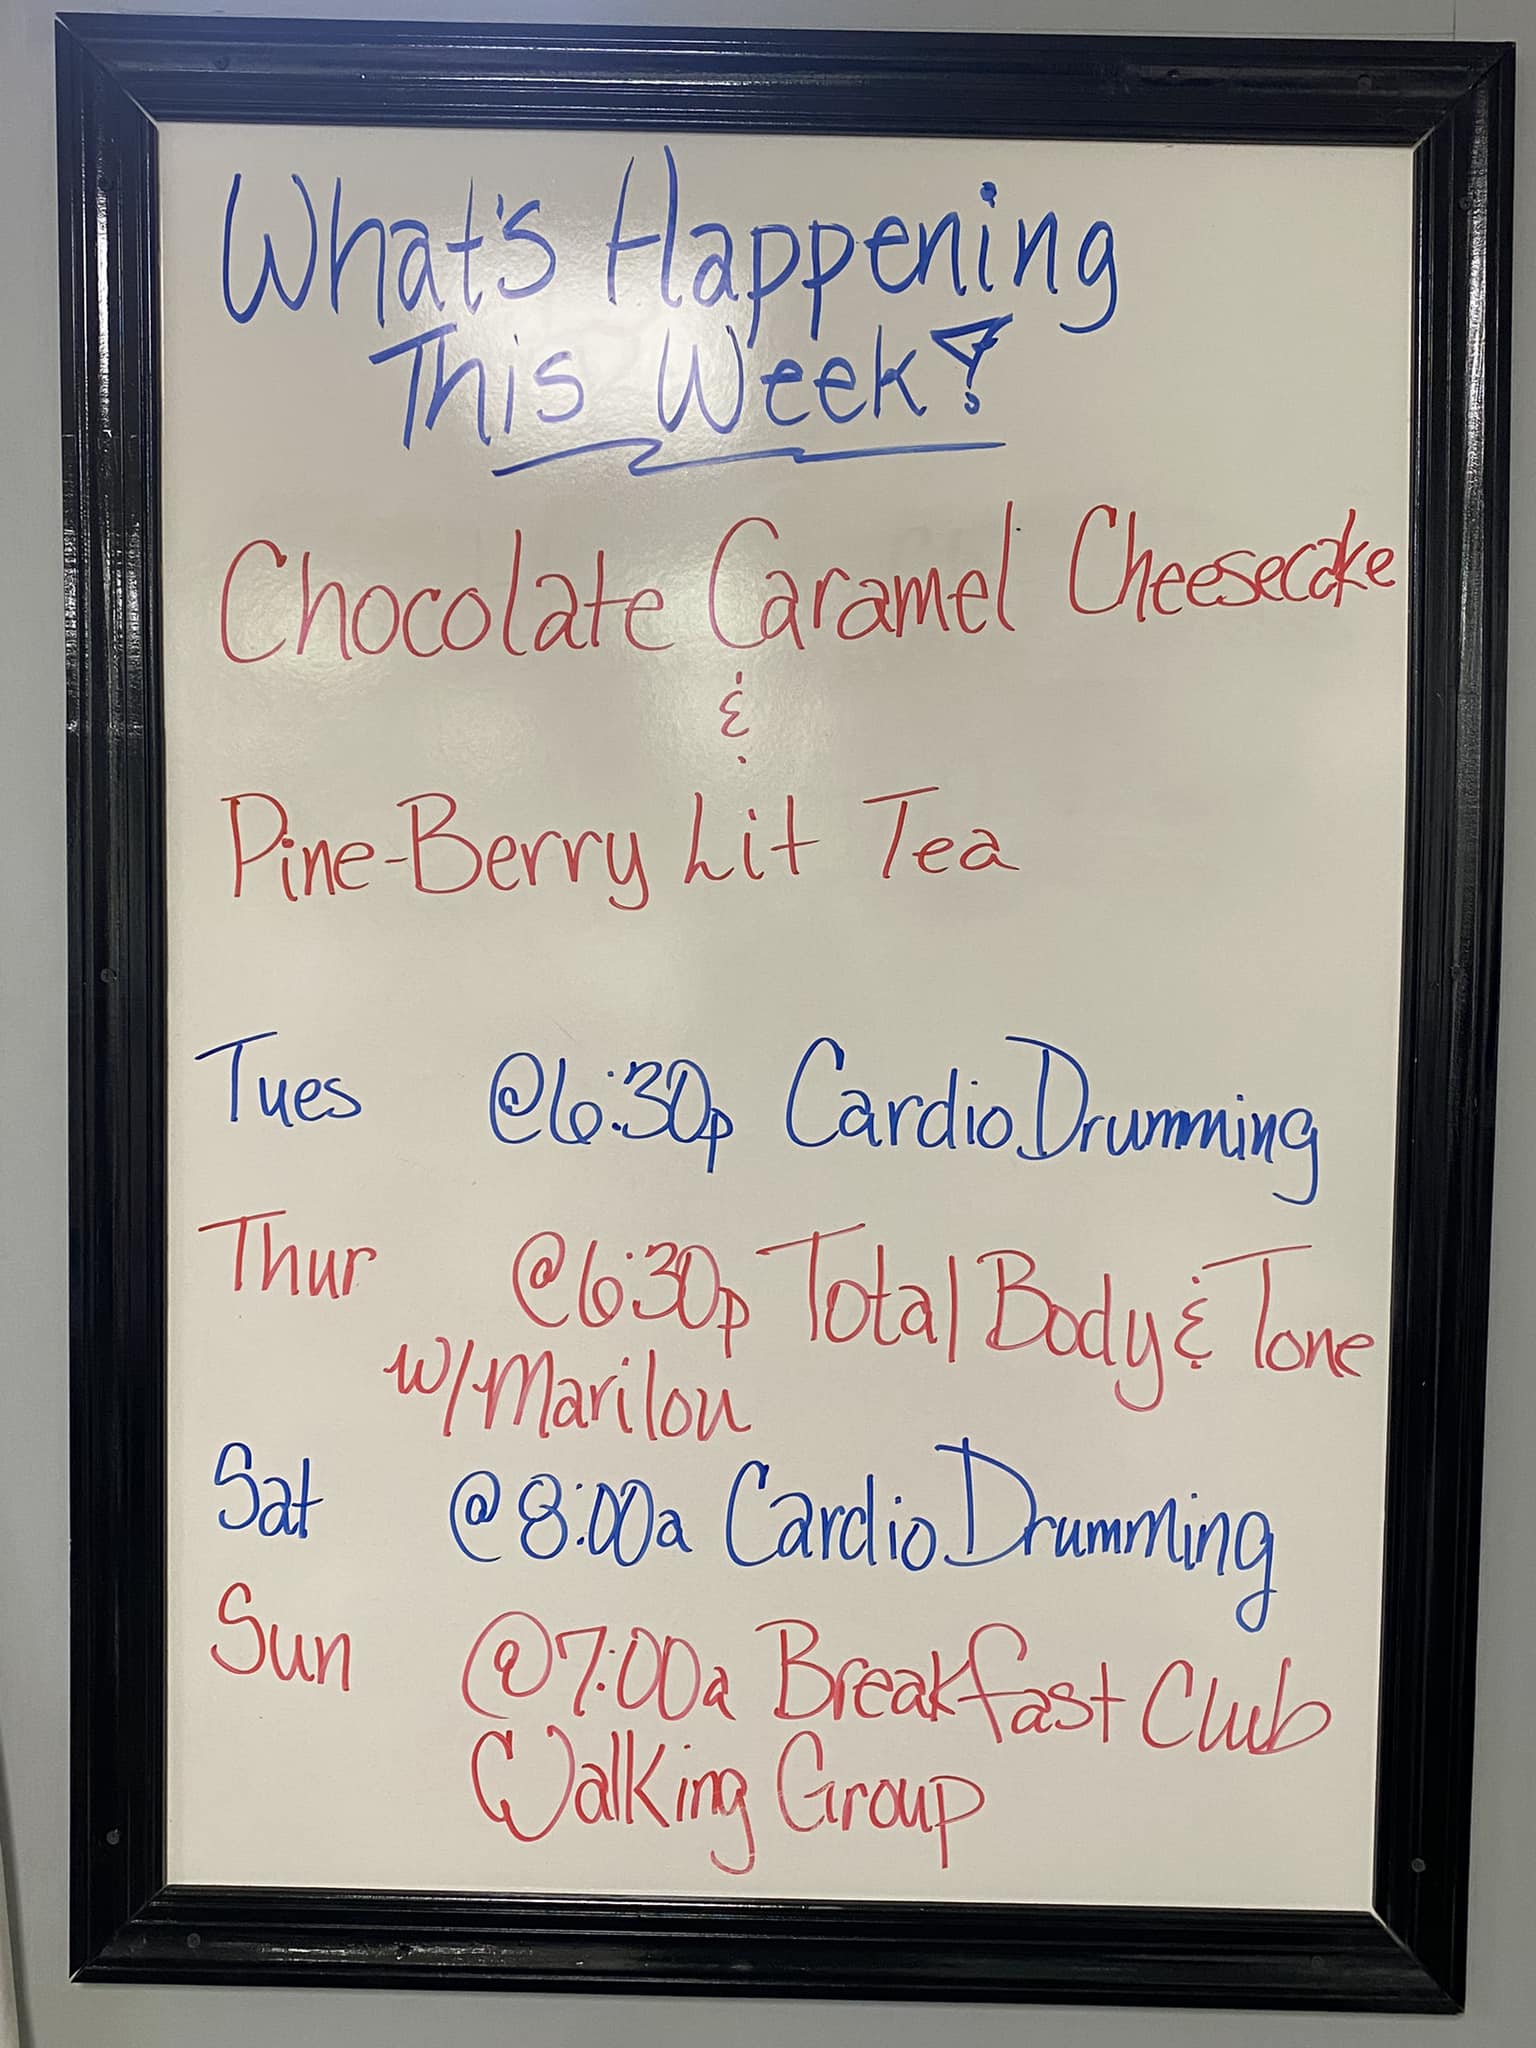 What's Happening
This Week?
Chocolate Caramel Cheesecake
&
Pine-Berry Lit Tea
Tues @6:30p Cardio Drumming
Thur @6:30p Total Body & Tone
w/Marilou
Sat @8:00a Cardio Drumming
Sun @7:00a Breakfast Club
Walking Group